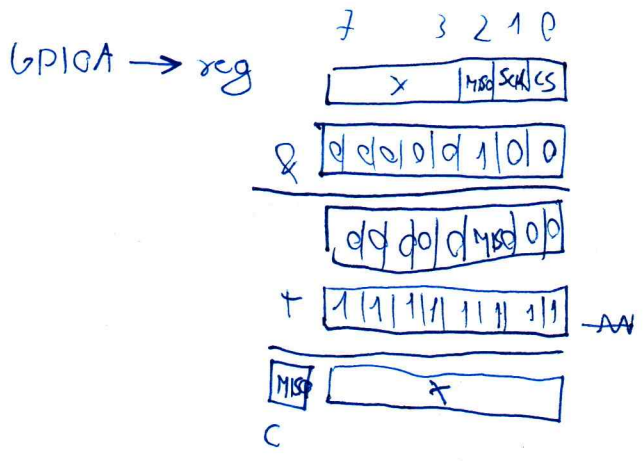 7 3 2 1 0
GPIOA → reg X MISO SCK CS
& 0 0 0 0 0 1 0 0
0 0 0 0 0 MISO 0 0
+ 1 1 1 1 1 1 1 1
MISO X
C